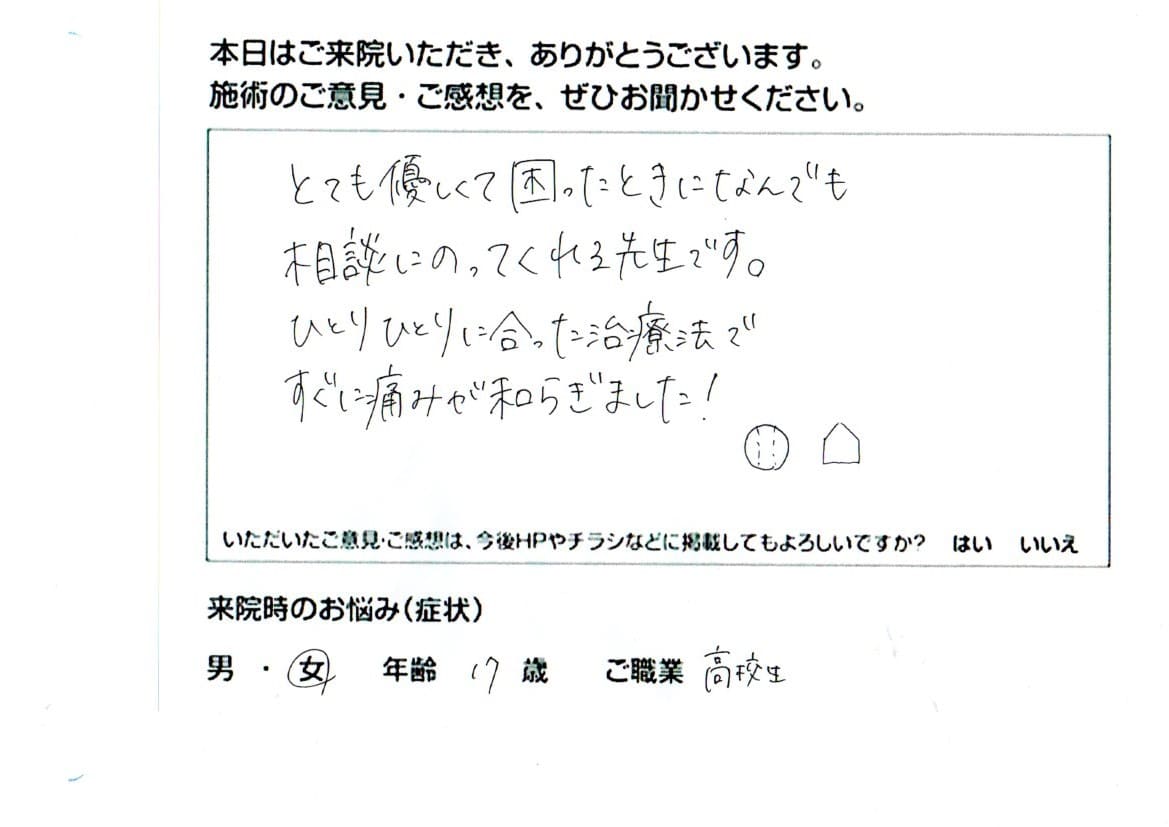 本日はご来院いただき、ありがとうございます。
施術のご意見・ご感想を、ぜひお聞かせください。
とても優しくて困ったときになんでも
相談にのってくれる先生です。
ひとりひとりに合った治療法で
すぐに痛みが和らぎました!
いただいたご意見・ご感想は、今後HPやチラシなどに掲載してもよろしいですか? はい いいえ
来院時のお悩み(症状)
男 ・ 女 年齢 17 歳 ご職業 高校生